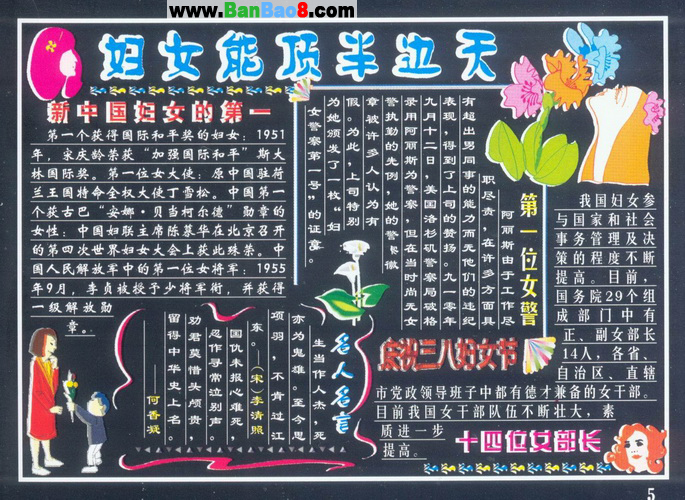 www.BanBao8.com
妇女能顶半边天
新中国妇女的第一
第一个获得国际和平奖的妇女：1951
年，宋庆龄荣获“加强国际和平”斯大
林国际奖。第一位女大使：原中国驻荷
兰王国特命全权大使丁雪松。中国第一
个获古巴“安娜·贝当柯尔德”勋章的
女性：中国妇联主席陈慕华在北京召开
的第四次世界妇女大会上获此殊荣。中
国人民解放军中的第一位女将军：1955
年9月，李贞被授予少将军衔，并获得
一级解放勋
章。
第一位女警
阿丽斯由于工作尽
职尽责，在许多方面具
有超出男同事的能力而无他们的违纪
表现，得到了上司的赞扬。九一零年
九月十二日，美国洛杉矶警察局破格
录用阿丽斯为警察，但在当时尚无女
警执勤的先例，她的警徽
章被许多人认为有
假。为此，上司特别
为她颁发了一枚“妇
女警察第一号”的证章。
我国妇女参
与国家和社会
事务管理及决
策的程度不断
提高。目前，
国务院29个组
成部门中有
正、副女部长
14人，各省、
自治区、直辖
市党政领导班子中都有德才兼备的女干部。
目前我国女干部队伍不断壮大，素
质进一步
提高。
十四位女部长
庆祝三八妇女节
名人名言
生当作人杰，死
亦为鬼雄。至今思
项羽，不肯过江
东。—（宋）李清照
国仇未报心难死，
忍作寻常泣别声。
劝君莫惜头颅贵，
留得中华史上名。
—何香凝
5